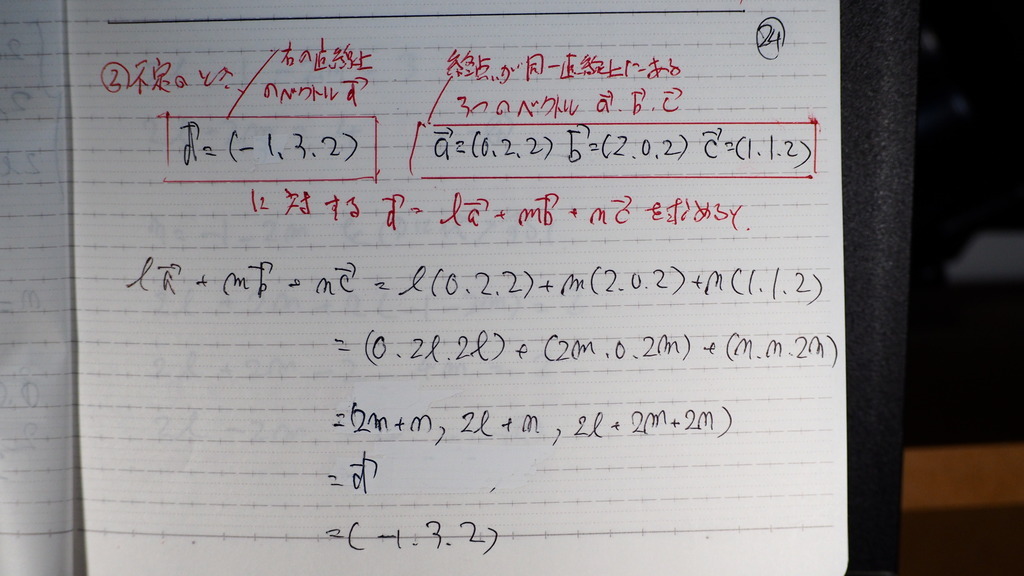 24
②不定のとき
右の直線上
のベクトル d→
終点が同一直線上にある
3つのベクトル a→. b→. c→
d→ = (-1. 3. 2)
a→ = (0. 2. 2) b→ = (2. 0. 2) c→ = (1. 1. 2)
に対する d→ = la→ + mb→ + nc→ を求めるよ.
la→ + mb→ + nc→ = l(0. 2. 2) + m(2. 0. 2) + n(1. 1. 2)
= (0. 2l. 2l) + (2m. 0. 2m) + (n. n. 2n)
= (2m+n, 2l+n, 2l+2m+2n)
= d→
= (-1. 3. 2)